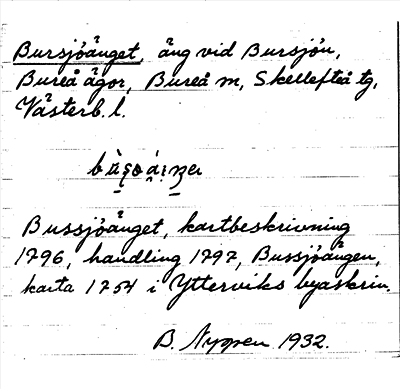 Bursjöänget, äng vid Bursjön,
Bureå ägor, Bureå m, Skellefteå tg,
Västerb. l.
Bussjöänget, kartbeskrivning
1796, handling 1797, Bussjöängen,
karta 1754 i Ytterviks byaskrin.
B. Nygren 1932.